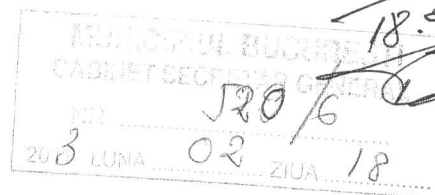 18.
MUNICIPIUL BUCUREȘTI
CABINET SECRETAR GENERAL
NR 520/6
2013 LUNA 02 ZIUA 18